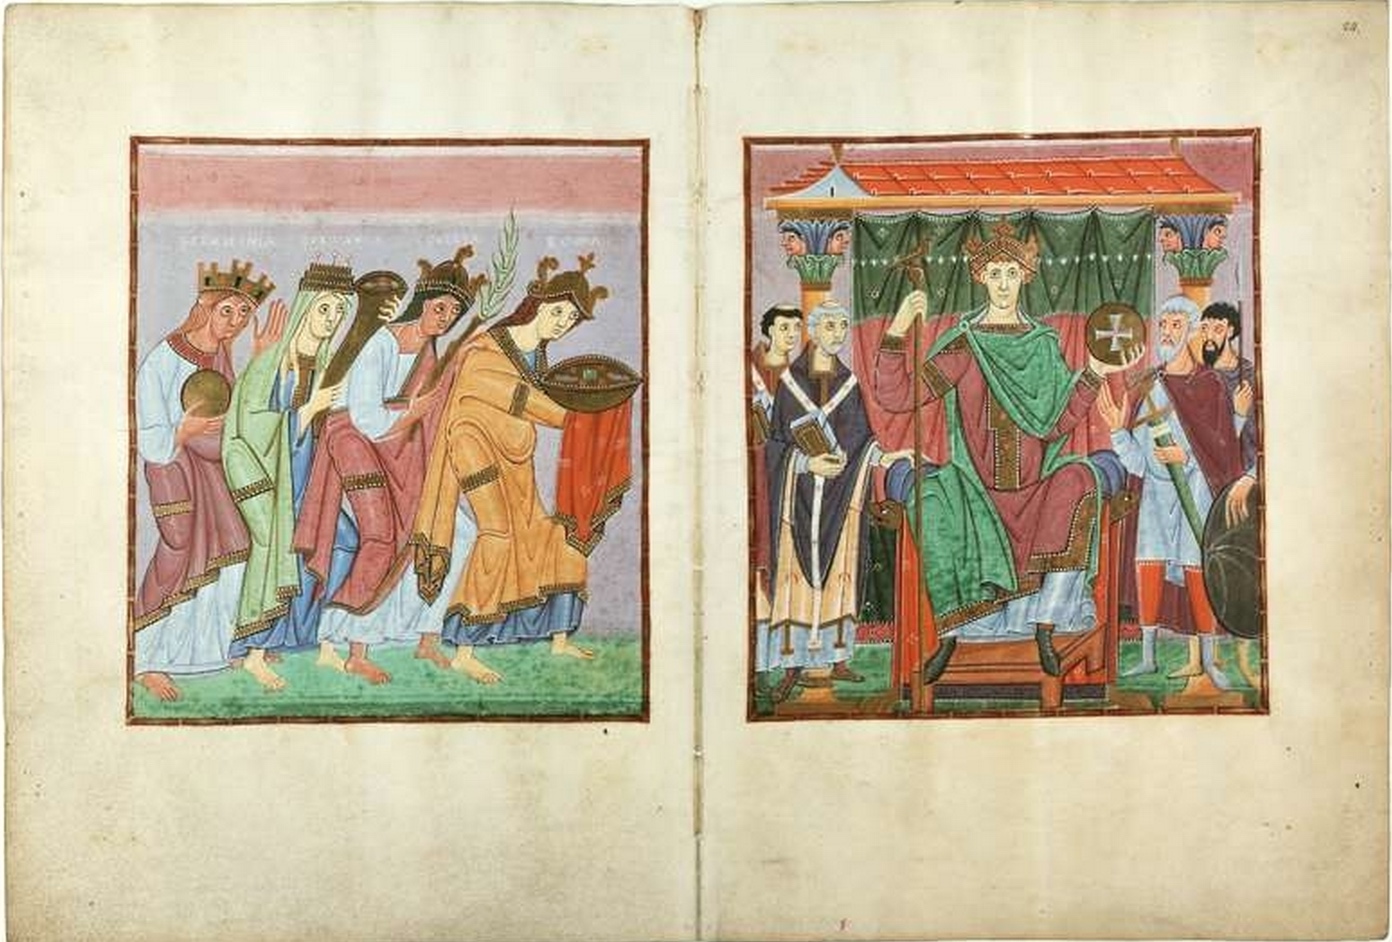 24.
SCLAVINIA GERMANIA GALLIA ROMA